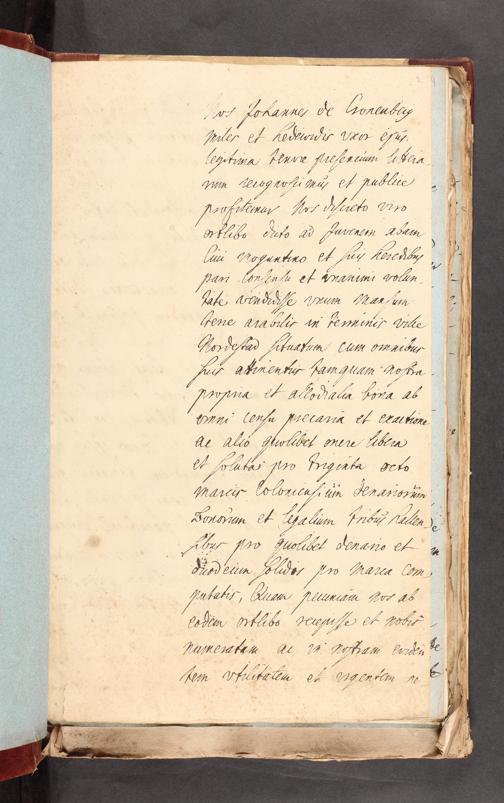 Nos Johannes de Cronenberg
miles et Hedewidis vxor ejus
legitima tenore presencium littera
rum recognoscimus et publice
profitemur Nos discreto viro
ortlibo dicto ad Juvenem
Civi Moguntino et suis heredibus
pari consensu et vnanimi volun-
tate vendidisse vnum Mansum
terre arabilis in terminis ville
Nordestad situatum cum omnibus
suis attinentiis tamquam nostra
propria et allodialia bona ab
omni censu precaria et exactione
ac alio quolibet onere libera
et soluta pro triginta octo
marcis Coloniensium denariorum
Bonorum et legalium tribus Hallen-
sibus pro quolibet denario et
duodecim solidos pro Marca com
putatis, Quam pecuniam nos ab
eodem ortlibo recepisse et nobis
numeratam ac in nostram eviden
tem vtilitatem et vrgentem ne